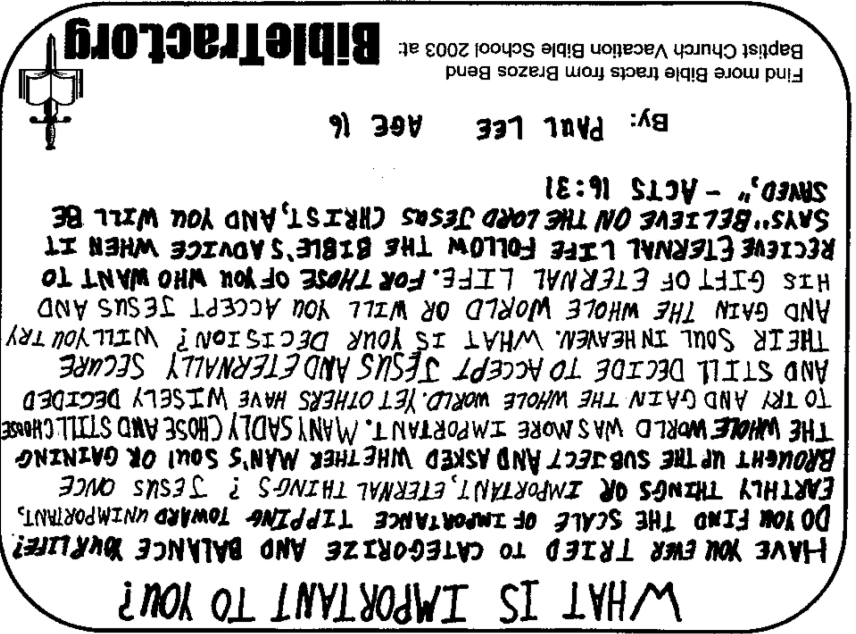 WHAT IS IMPORTANT TO YOU?
HAVE YOU EVER TRIED TO CATEGORIZE AND BALANCE YOUR LIFE?
DO YOU FIND THE SCALE OF IMPORTANCE TIPPING TOWARD UNIMPORTANT,
EARTHLY THINGS OR IMPORTANT, ETERNAL THINGS? JESUS ONCE
BROUGHT UP THE SUBJECT AND ASKED WHETHER MAN'S SOUL OR GAINING
THE WHOLE WORLD WAS MORE IMPORTANT. MANY SADLY CHOSE AND STILL CHOOSE
TO TRY AND GAIN THE WHOLE WORLD. YET OTHERS HAVE WISELY DECIDED
AND STILL DECIDE TO ACCEPT JESUS AND ETERNALLY SECURE
THEIR SOUL IN HEAVEN. WHAT IS YOUR DECISION? WILL YOU TRY
AND GAIN THE WHOLE WORLD OR WILL YOU ACCEPT JESUS AND
HIS GIFT OF ETERNAL LIFE. FOR THOSE OF YOU WHO WANT TO
RECIEVE ETERNAL LIFE FOLLOW THE BIBLE'S ADVICE WHEN IT
SAYS "BELIEVE ON THE LORD JESUS CHRIST, AND YOU WILL BE
SAVED," - ACTS 16:31
By: PAUL LEE AGE 16
Find more Bible tracts from Brazos Bend
Baptist Church Vacation Bible School 2003 at:
BibleTract.org